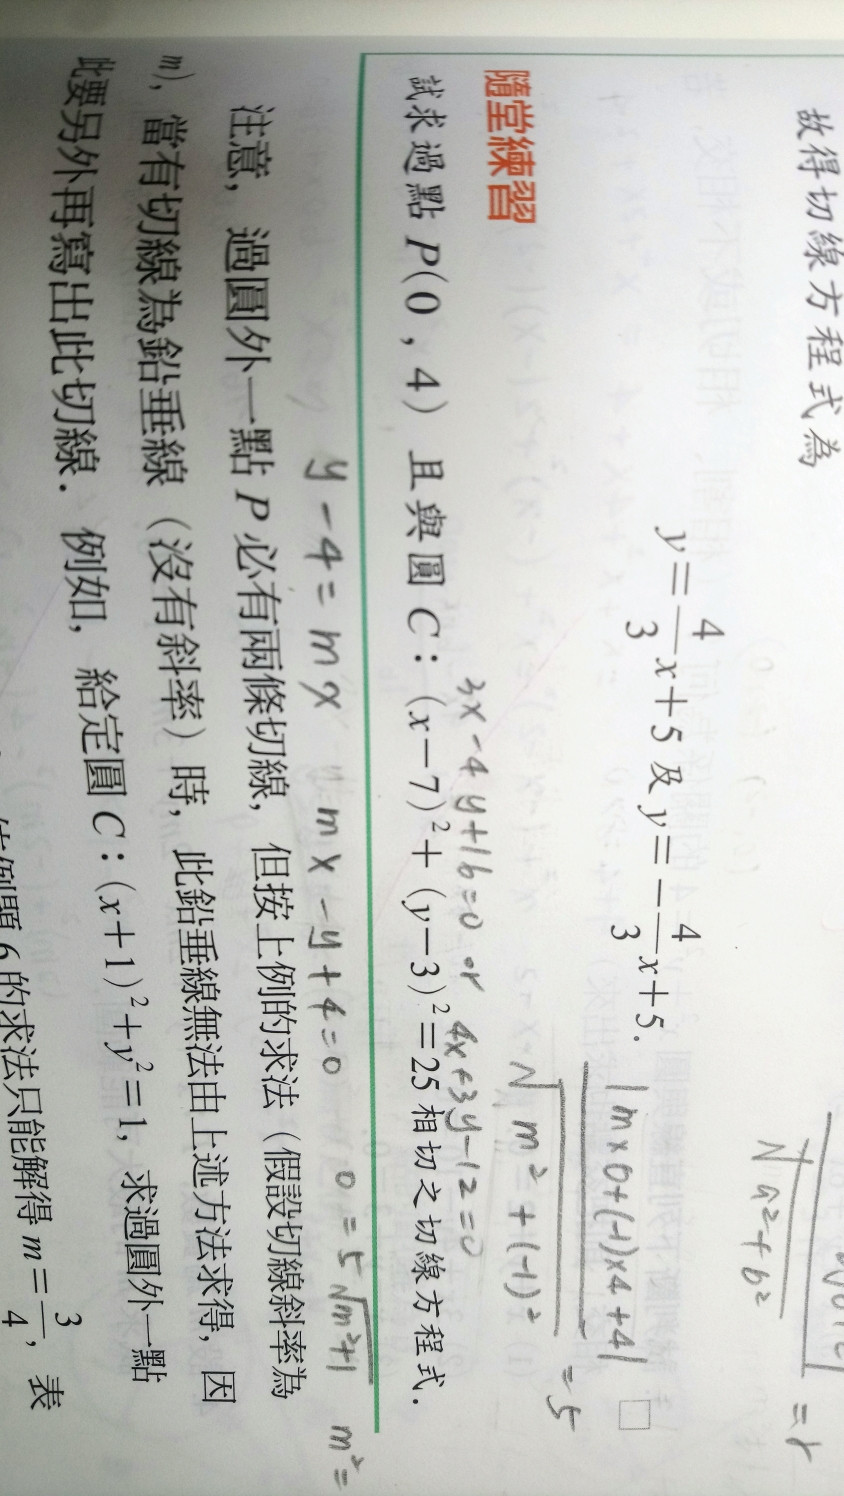 故得切線方程式為
y=4/3x+5 及 y=-4/3x+5.
√a²+b² = r
|m×0+(-1)×4+4| □
√m²+(-1)² = 5
隨堂練習
3x-4y+16=0 or 4x+3y-12=0
試求過點 P(0,4) 且與圓 C:(x-7)²+(y-3)²=25 相切之切線方程式.
y-4=mx mx-y+4=0 0=5√m²+1 m²=
注意,過圓外一點 P 必有兩條切線,但按上例的求法(假設切線斜率為
m),當有切線為鉛垂線(沒有斜率)時,此鉛垂線無法由上述方法求得,因
此要另外再寫出此切線.例如,給定圓 C:(x+1)²+y²=1,求過圓外一點
例題 6 的求法只能解得 m=3/4,表